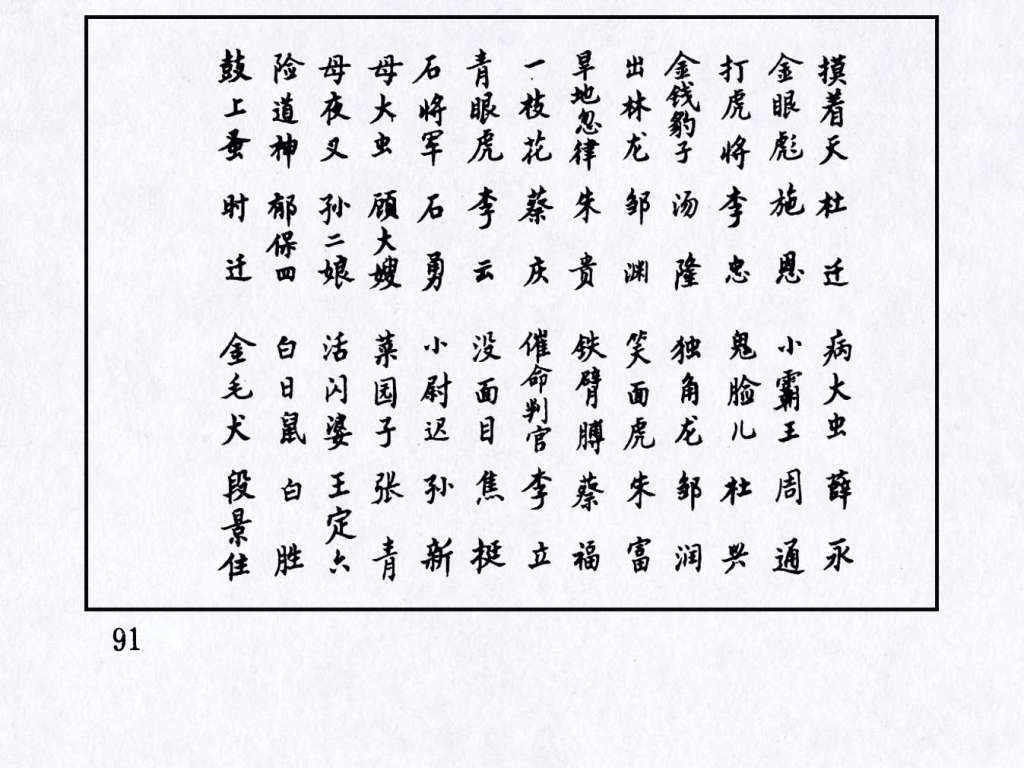 摸着天 杜迁 病大虫 薛永
金眼彪 施恩 小霸王 周通
打虎将 李忠 鬼脸儿 杜兴
金钱豹子 汤隆 独角龙 邹润
出林龙 邹渊 笑面虎 朱富
旱地忽律 朱贵 铁臂膊 蔡福
一枝花 蔡庆 催命判官 李立
青眼虎 李云 没面目 焦挺
石将军 石勇 小尉迟 孙新
母大虫 顾大嫂 菜园子 张青
母夜叉 孙二娘 活闪婆 王定六
险道神 郁保四 白日鼠 白胜
鼓上蚤 时迁 金毛犬 段景住
91